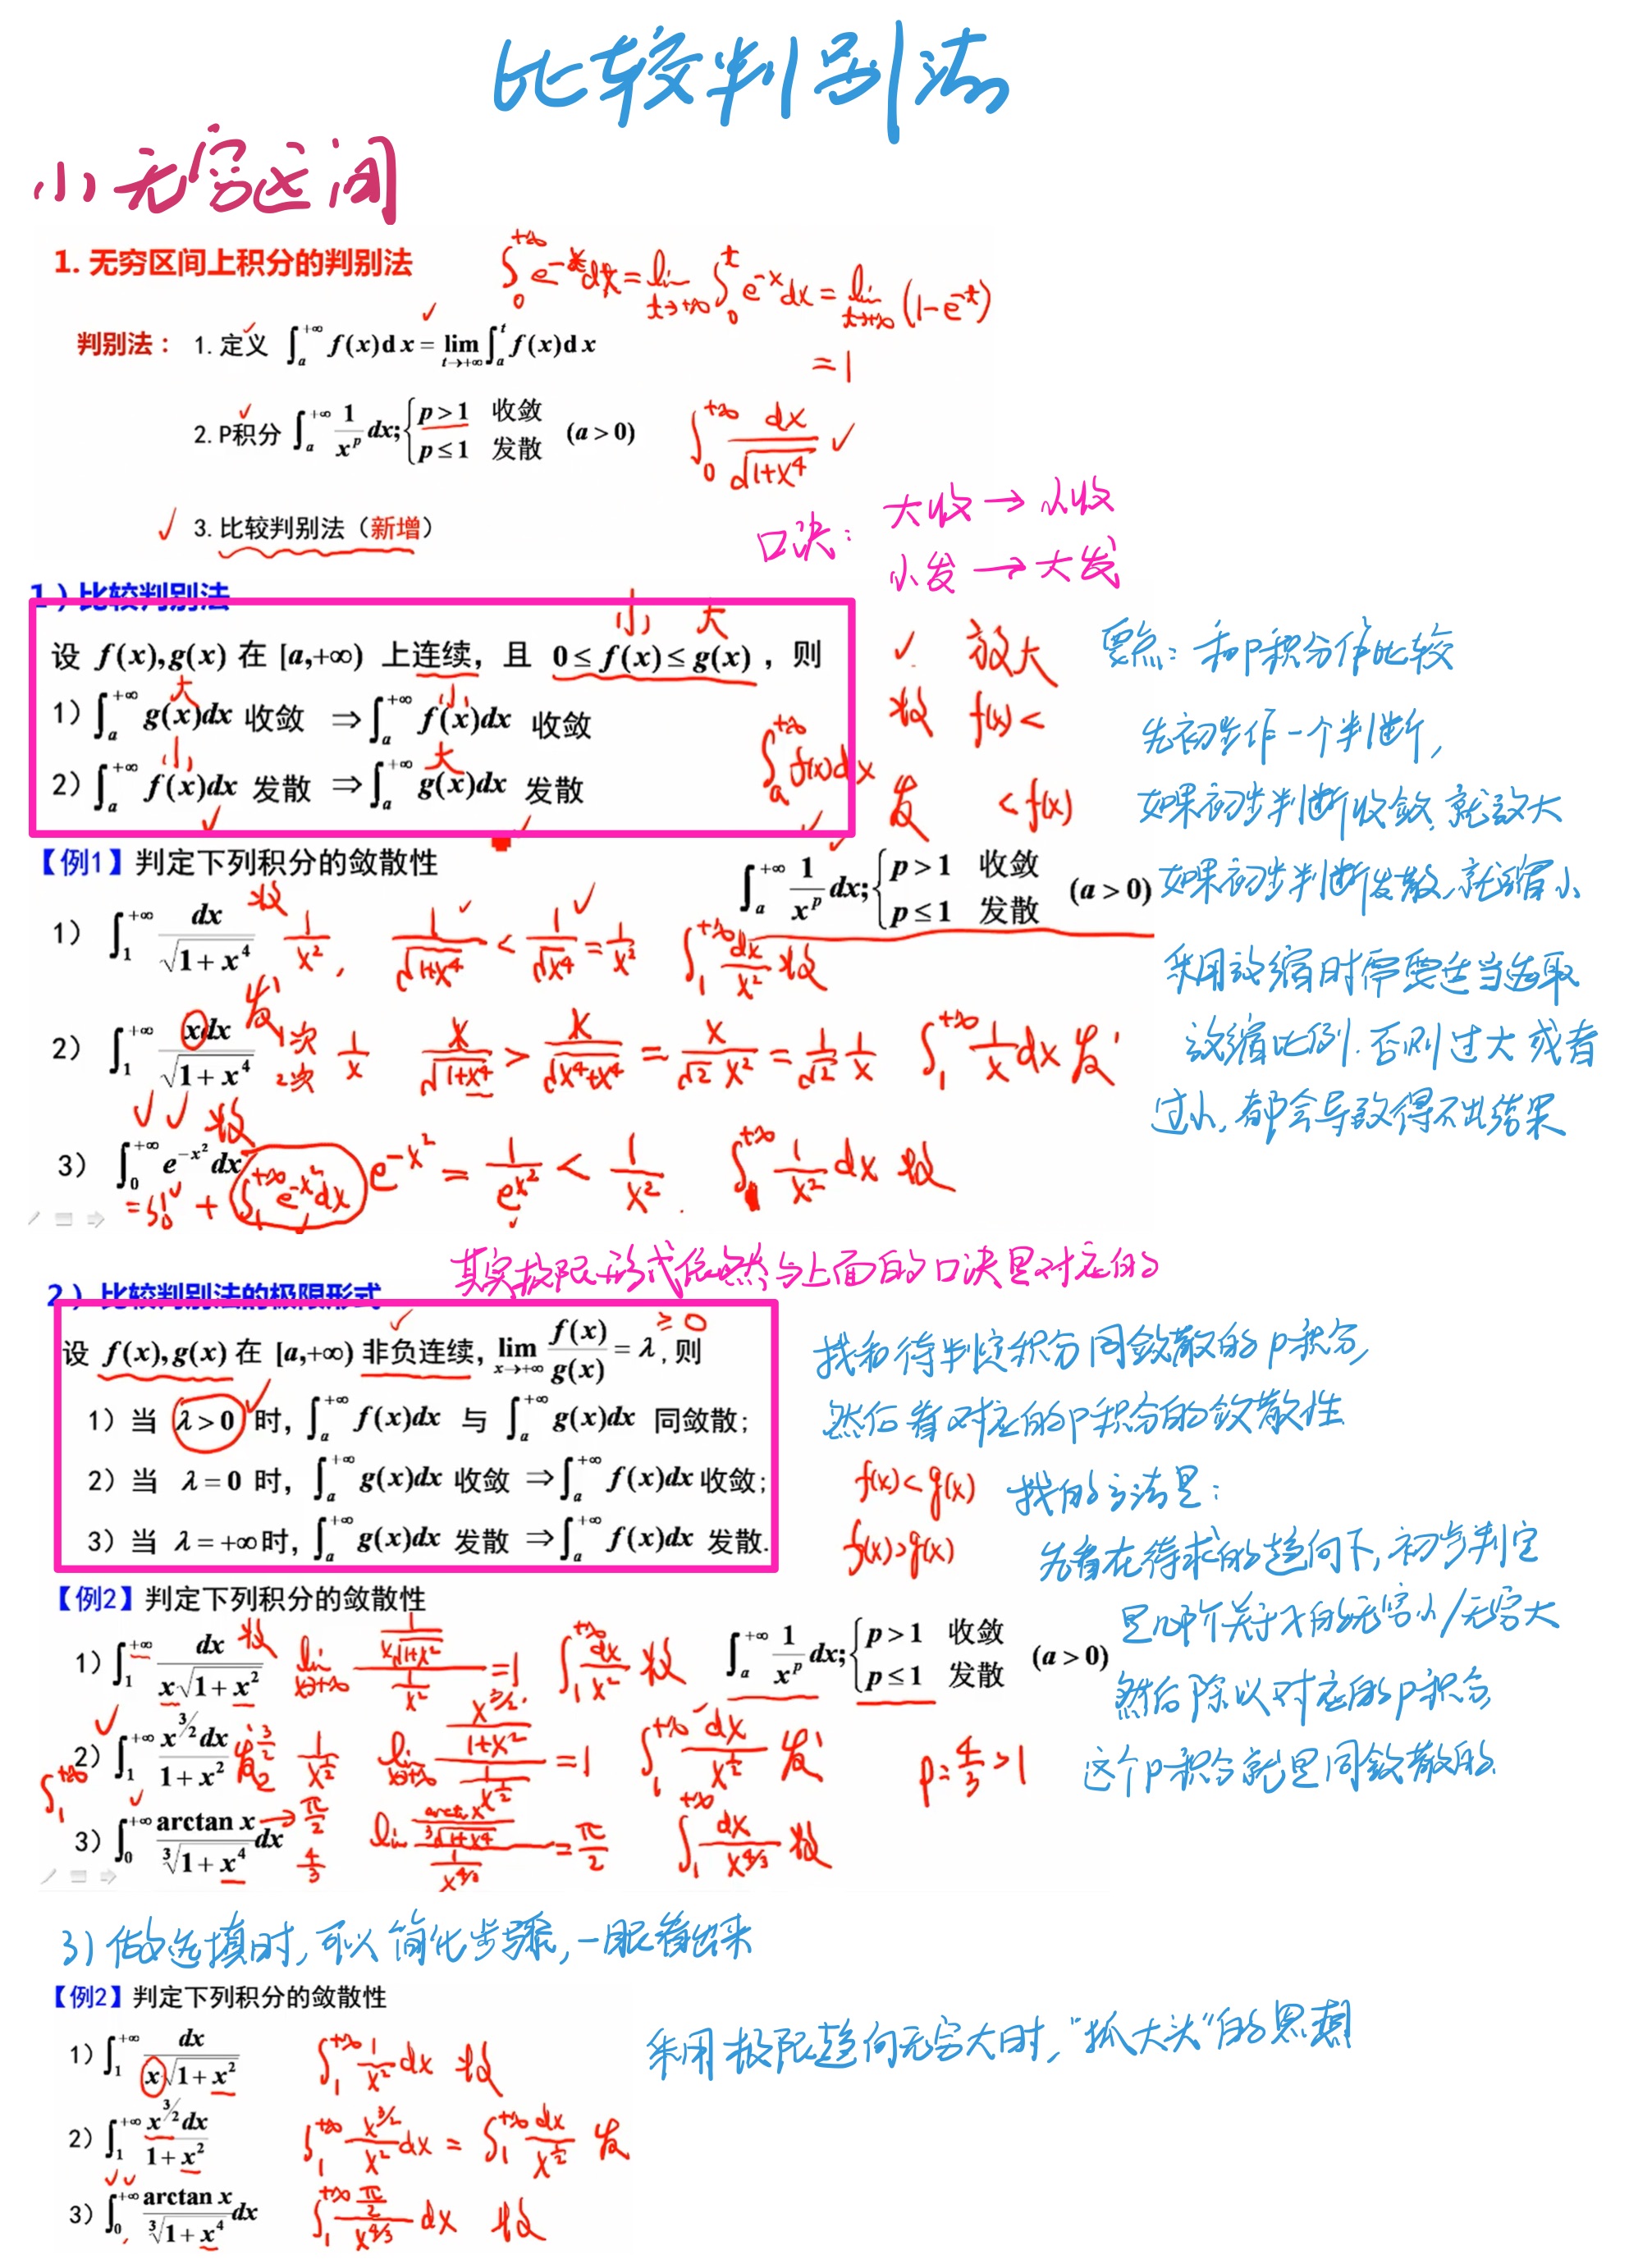 比较判别法
(1) 无穷区间
1. 无穷区间上积分的判别法
∫₀^{+∞} e^{-x}dx = lim_{t→+∞} ∫₀^t e^{-x}dx = lim_{t→+∞} (1-e^{-t})
= 1
判别法： 1. 定义 ∫_a^{+∞} f(x)dx = lim_{t→+∞} ∫_a^t f(x)dx
2. P积分 ∫_a^{+∞} 1/x^p dx; { p>1 收敛 p≤1 发散 (a>0)
∫₀^{+∞} dx/√(1+x⁴) ✓
3. 比较判别法（新增）
口诀： 大收 → 小收
小发 → 大发
1）比较判别法
小 大
设 f(x),g(x) 在 [a,+∞) 上连续，且 0≤f(x)≤g(x)，则
大 小
1) ∫_a^{+∞} g(x)dx 收敛 ⇒ ∫_a^{+∞} f(x)dx 收敛
小 大
2) ∫_a^{+∞} f(x)dx 发散 ⇒ ∫_a^{+∞} g(x)dx 发散
∫_a^{+∞} f(x)dx
✓ 放大
收 f(x)<
发 <f(x)
要点：和p积分作比较
先初步作一个判断，
如果初步判断收敛,就放大
如果初步判断发散,就缩小
采用放缩时需要适当选取
放缩比例.否则过大或者
过小,都会导致得不出结果
【例1】判定下列积分的敛散性
∫_a^{+∞} 1/x^p dx; { p>1 收敛 p≤1 发散 (a>0)
1) ∫₁^{+∞} dx/√(1+x⁴) 收 1/x², 1/√(1+x⁴) < 1/√x⁴ = 1/x² ∫₁^{+∞} dx/x² 收
2) ∫₁^{+∞} xdx/√(1+x⁴) 发 1次 2次 1/x x/√(1+x⁴) > x/√(x⁴+x⁴) = x/(√2 x²) = 1/√2 1/x ∫₁^{+∞} 1/x dx 发
3) ∫₀^{+∞} e^{-x²}dx 收 e^{-x²} = 1/e^{x²} < 1/x². ∫₁^{+∞} 1/x² dx 收
= ∫₀¹ + ∫₁^{+∞} e^{-x²}dx
其实极限形式依然与上面的口诀是对应的
2）比较判别法的极限形式
设 f(x),g(x) 在 [a,+∞) 非负连续, lim_{x→+∞} f(x)/g(x) = λ ≥0 ,则
1）当 λ>0 时，∫_a^{+∞} f(x)dx 与 ∫_a^{+∞} g(x)dx 同敛散；
2）当 λ=0 时，∫_a^{+∞} g(x)dx 收敛 ⇒ ∫_a^{+∞} f(x)dx 收敛；
3）当 λ=+∞ 时，∫_a^{+∞} g(x)dx 发散 ⇒ ∫_a^{+∞} f(x)dx 发散.
找和待判定积分同敛散的p积分,
然后看对应的p积分的敛散性
f(x)<g(x)
f(x)>g(x)
找的方法是：
先看在待求的趋向下,初步判定
是几阶关于x的无穷小/无穷大
然后除以对应的p积分,
这个p积分就是同敛散的.
【例2】判定下列积分的敛散性
1) ∫₁^{+∞} dx/(x√(1+x²)) 收 lim_{x→+∞} (1/(x√(1+x²)))/(1/x²) = 1 ∫₁^{+∞} dx/x² 收
∫_a^{+∞} 1/x^p dx; { p>1 收敛 p≤1 发散 (a>0)
2) ∫₁^{+∞} x^{3/2}dx/(1+x²) 发 3/2 2 1/x^{1/2} lim_{x→+∞} (x^{3/2}/(1+x²))/(1/x^{1/2}) = 1 ∫₁^{+∞} dx/x^{1/2} 发
p=4/3>1
∫₁^{+∞}
3) ∫₀^{+∞} arctan x/∛(1+x⁴) dx → π/2 4/3 lim (arctan x/∛(1+x⁴))/(1/x^{4/3}) = π/2 ∫₁^{+∞} dx/x^{4/3} 收
3) 做选填时,可以简化步骤,一眼看出来
【例2】判定下列积分的敛散性
1) ∫₁^{+∞} dx/(x√(1+x²)) ∫₁^{+∞} 1/x² dx 收
采用极限趋向无穷大时,"抓大头"的思想
2) ∫₁^{+∞} x^{3/2}dx/(1+x²) ∫₁^{+∞} x^{3/2}/x² dx = ∫₁^{+∞} dx/x^{1/2} 发
3) ∫₀^{+∞} arctan x/∛(1+x⁴) dx ∫₁^{+∞} (π/2)/x^{4/3} dx 收